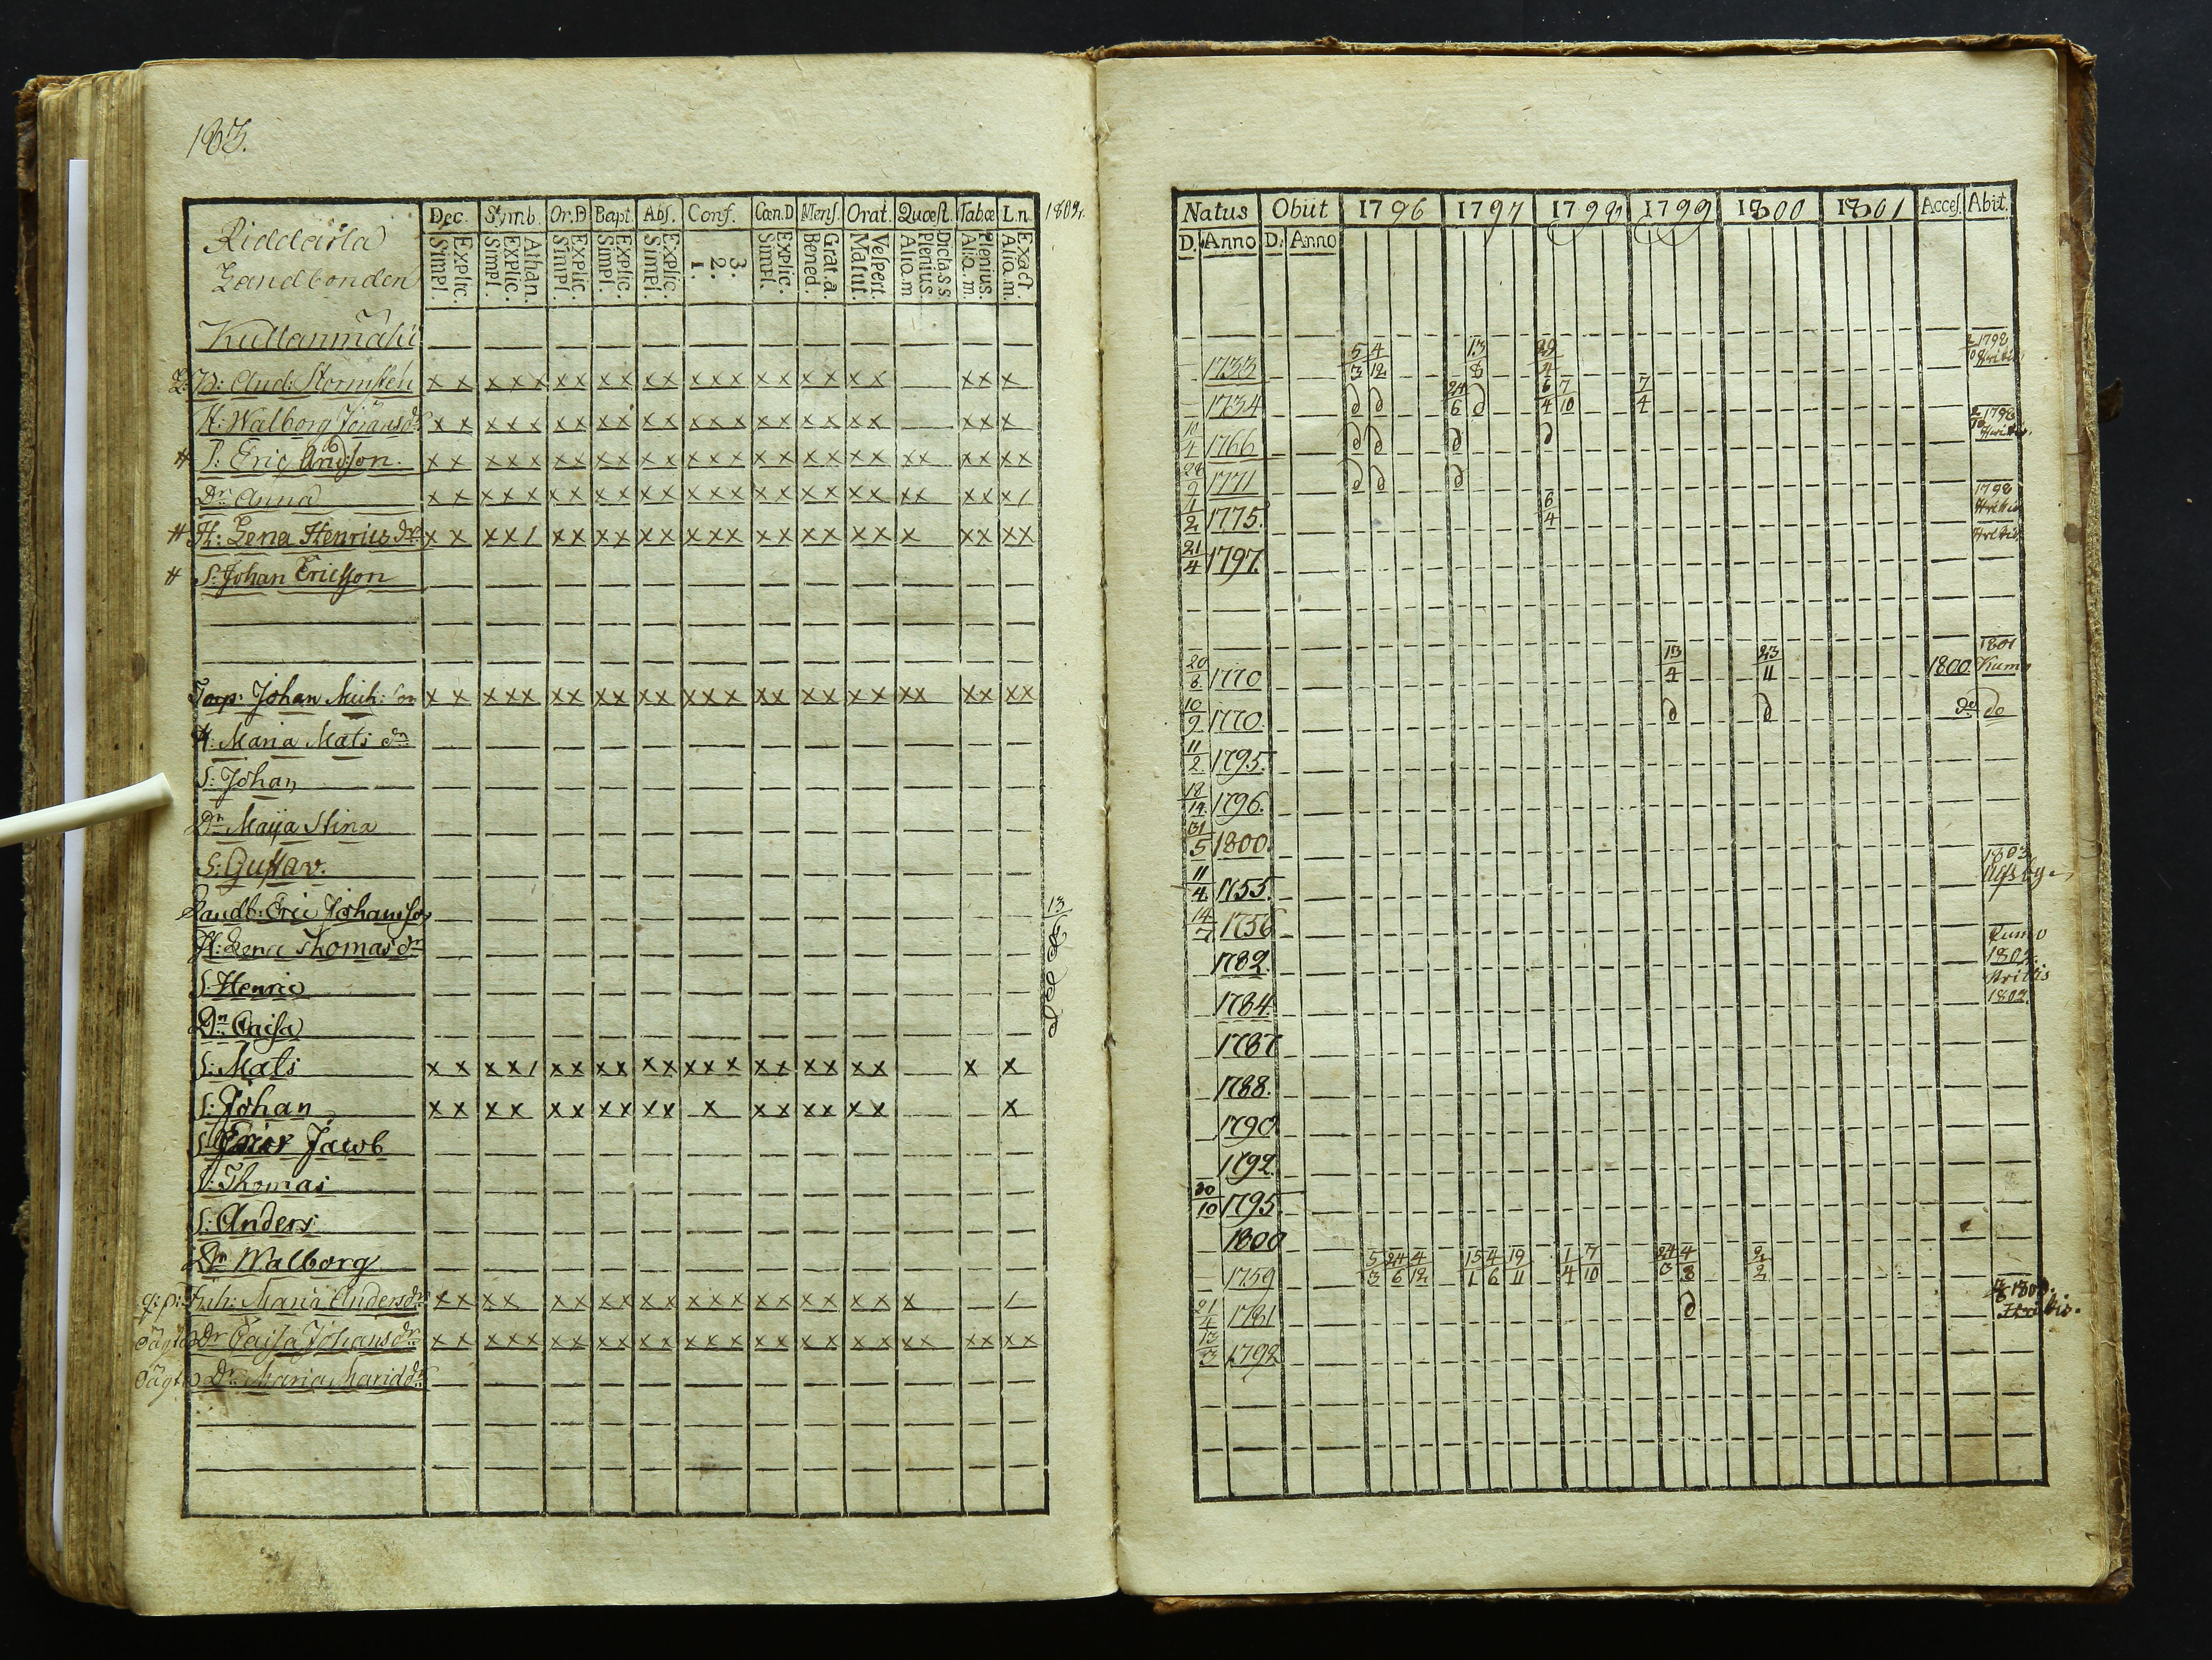 183.
Riddarla
Landbonden
Dec. Symb. Or.D Bapt. Abs. Conf. Cœn.D Mens. Orat. Quœst. Tabœ L.n. 1802.
Simpl. Explic. Simpl. Explic. Athan. Simpl. Explic. Simpl. Explic. Simpl. Explic. 1. 2. 3. Simpl. Explic. Bened. Grat. a. Matut. Vespert. Alio. m Plenius Dicta s s Alio. m. Plenius. Alio. m. Exact.
Kullanmäki
And: Stormsten x x x x x x x x x x x x x x x x x x x x x x x
H: Walborg Jöransdr x x x x x x x x x x x x x x x x x x x x x x x
# S: Eric Andsson. x x x x x x x x x x x x x x x x x x x x x x x x x x
Dr Anna x x x x x x x x x x x x x x x x x x x x x x x x x /
# H: Lena Henricsdr x x x x / x x x x x x x x x x x x x x x x x x x x
# S: Johan Ericsson
Torp: Johan Mich: son x x x x x x x x x x x x x x x x x x x x x x x x x x
H: Maria Mats dr
S: Johan
Dr Maija Stina
S: Gustav.
Landb: Eric Johansson 13
H: Lena Thomasdr
S: Henric
Dr Caisa
S: Mats x x x x / x x x x x x x x x x x x x x x x x
S: Johan x x x x x x x x x x x x x x x x x x
S: Jacob
S: Thomas
S: Anders
Dr Walborg
Maria Andersdr x x x x x x x x x x x x x x x x x x x x /
Dr Caisa Johansdr x x x x x x x x x x x x x x x x x x x x x x x x x x
Dr Maria
Natus Obiit 1796 1797 1798 1799 1800 1801 Acces. Abit.
D. Anno D. Anno
1733 5/3 4/12 13/8 29/4 1798
1734 24/6 6/4 7/10 7/4
10/4 1766 1798
28/9 1771
1/2 1775. 6/4 1798
21/4 1797.
20/8 1770 13/4 23/11 1800 1801 Kumo
10/9 1770. do do
11/2 1795.
18/14 1796.
31/5 1800.
11/4 1755. 1803
14/7 1756
1782. Kumo 1802.
1784. 1802.
1787
1788.
1790
1792.
30/10 1795
1800
1759 5/3 24/6 4/12 15/1 4/6 19/11 1/4 7/10 24/3 4/8 2/2
21/4 1781 1800.
13/3 1792